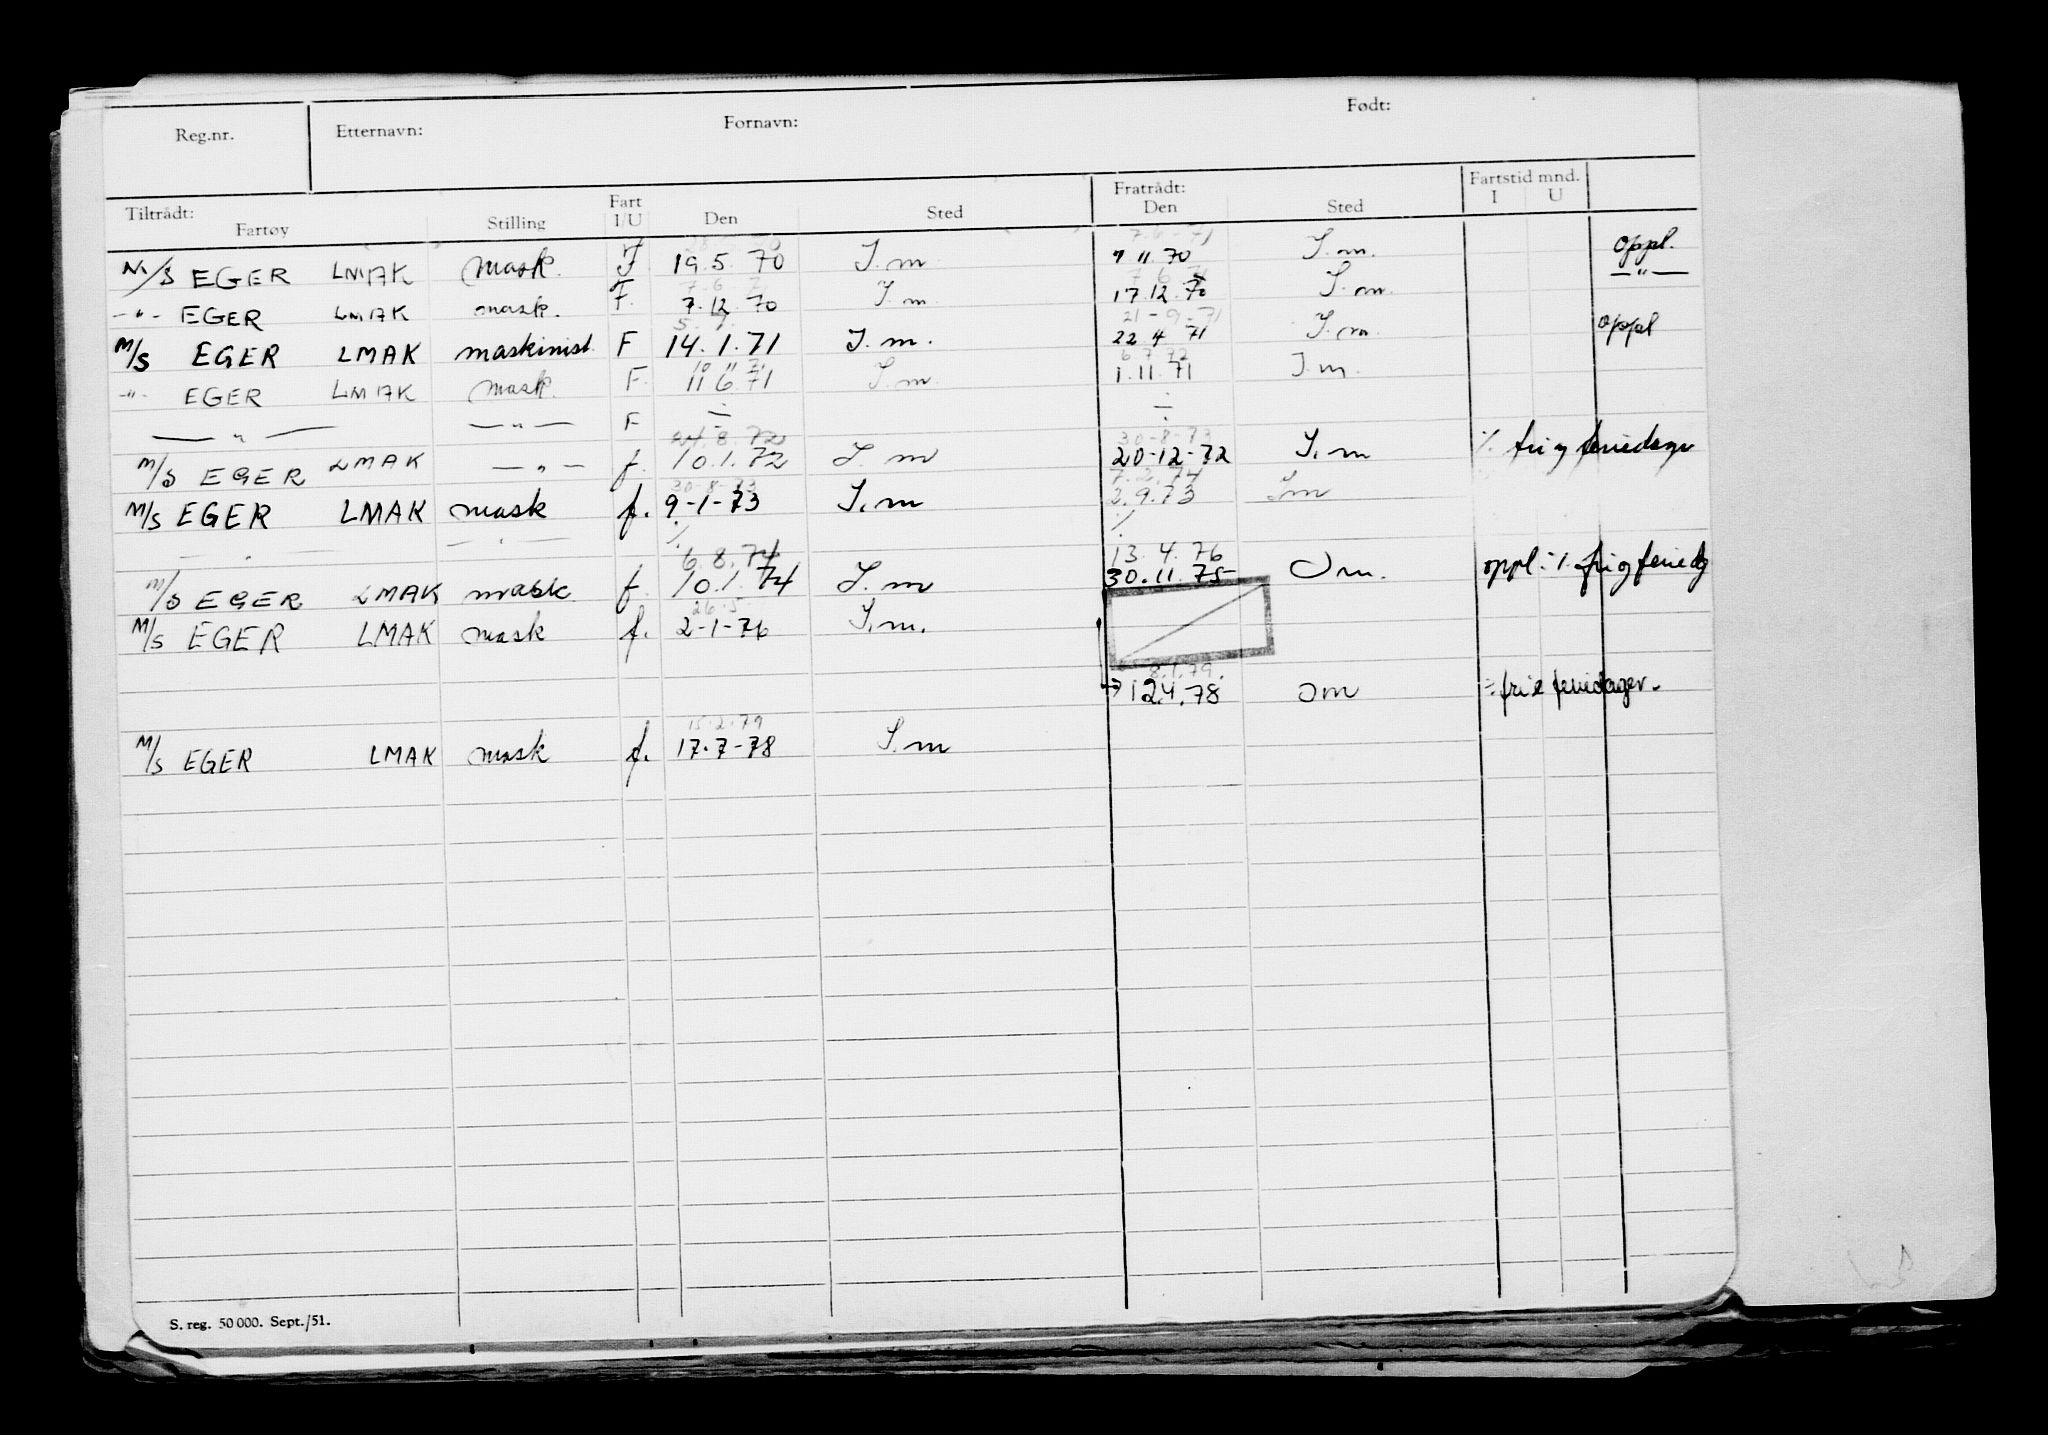 Reg.nr. Etternavn: Fornavn: Født:
Tiltrådt: Fratrådt: Fartstid mnd.
Fartøy Stilling Fart I/U Den Sted Den Sted I U
M/S EGER LMAK mask. F 19.5.70 S.m 7.11.70 S.m. oppl.
-"- EGER LMAK mask. F. 7.12.70 S.m 17.12.70 S.m. —"—
21-9-71
M/S EGER LMAK maskinist. F 14.1.71 S.m. 22 4 71 S.m oppl
10 11 71 6 7 72
-"- EGER LMAK mask. F. 11 6.71 S.m. 1.11.71 S.m.
—"— —"— F ÷ ÷
24.8.72 30-8-73
M/S EGER LMAK —"— f. 10.1.72 S.m 20-12-72 S.m ÷ fri og feriedage
30-8-73 7.2.74
M/S EGER LMAK mask f. 9-1-73 S.m 2.9.73 Sm
—"— —"— ÷ ÷
6.8.74 13.4.76
M/S EGER LMAK mask f. 10.1.74 S.m 30.11.75 Om. oppl. ÷ fri og feriedg
26.5
M/S EGER LMAK mask f. 2-1-76 S.m.
8.1.79.
→ 12.4.78 om ÷ fri & feriedager.
15.2.79
M/S EGER LMAK mask f. 17.7-78 S.m
S. reg. 50 000. Sept./51.